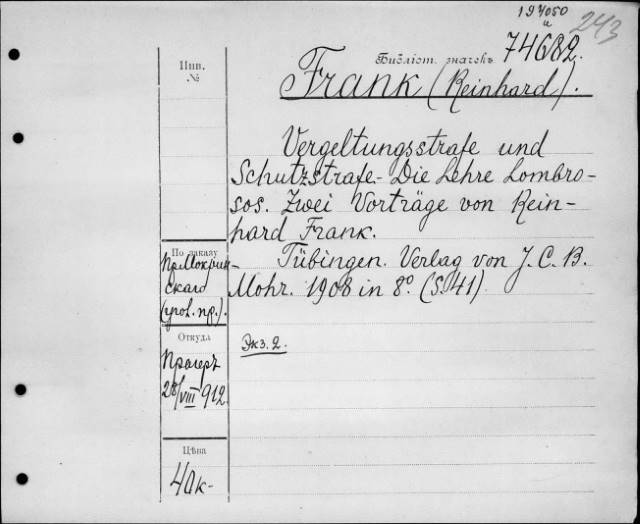 197050
и
243
Библіот. значекъ 74682.
Инв.
№
Frank (Reinhard).
Vergeltungsstrafe und
Schutzstrafe.- Die Lehre Lombro-
sos. Zwei Vorträge von Rein-
hard Frank.
Tübingen. Verlag von J. C. B.
Mohr. 1908 in 8° (S. 41).
По заказу
скаго
(угол. пр.).
Откуда
Прагеръ
28/VIII 912.
Экз. 2.
Цѣна